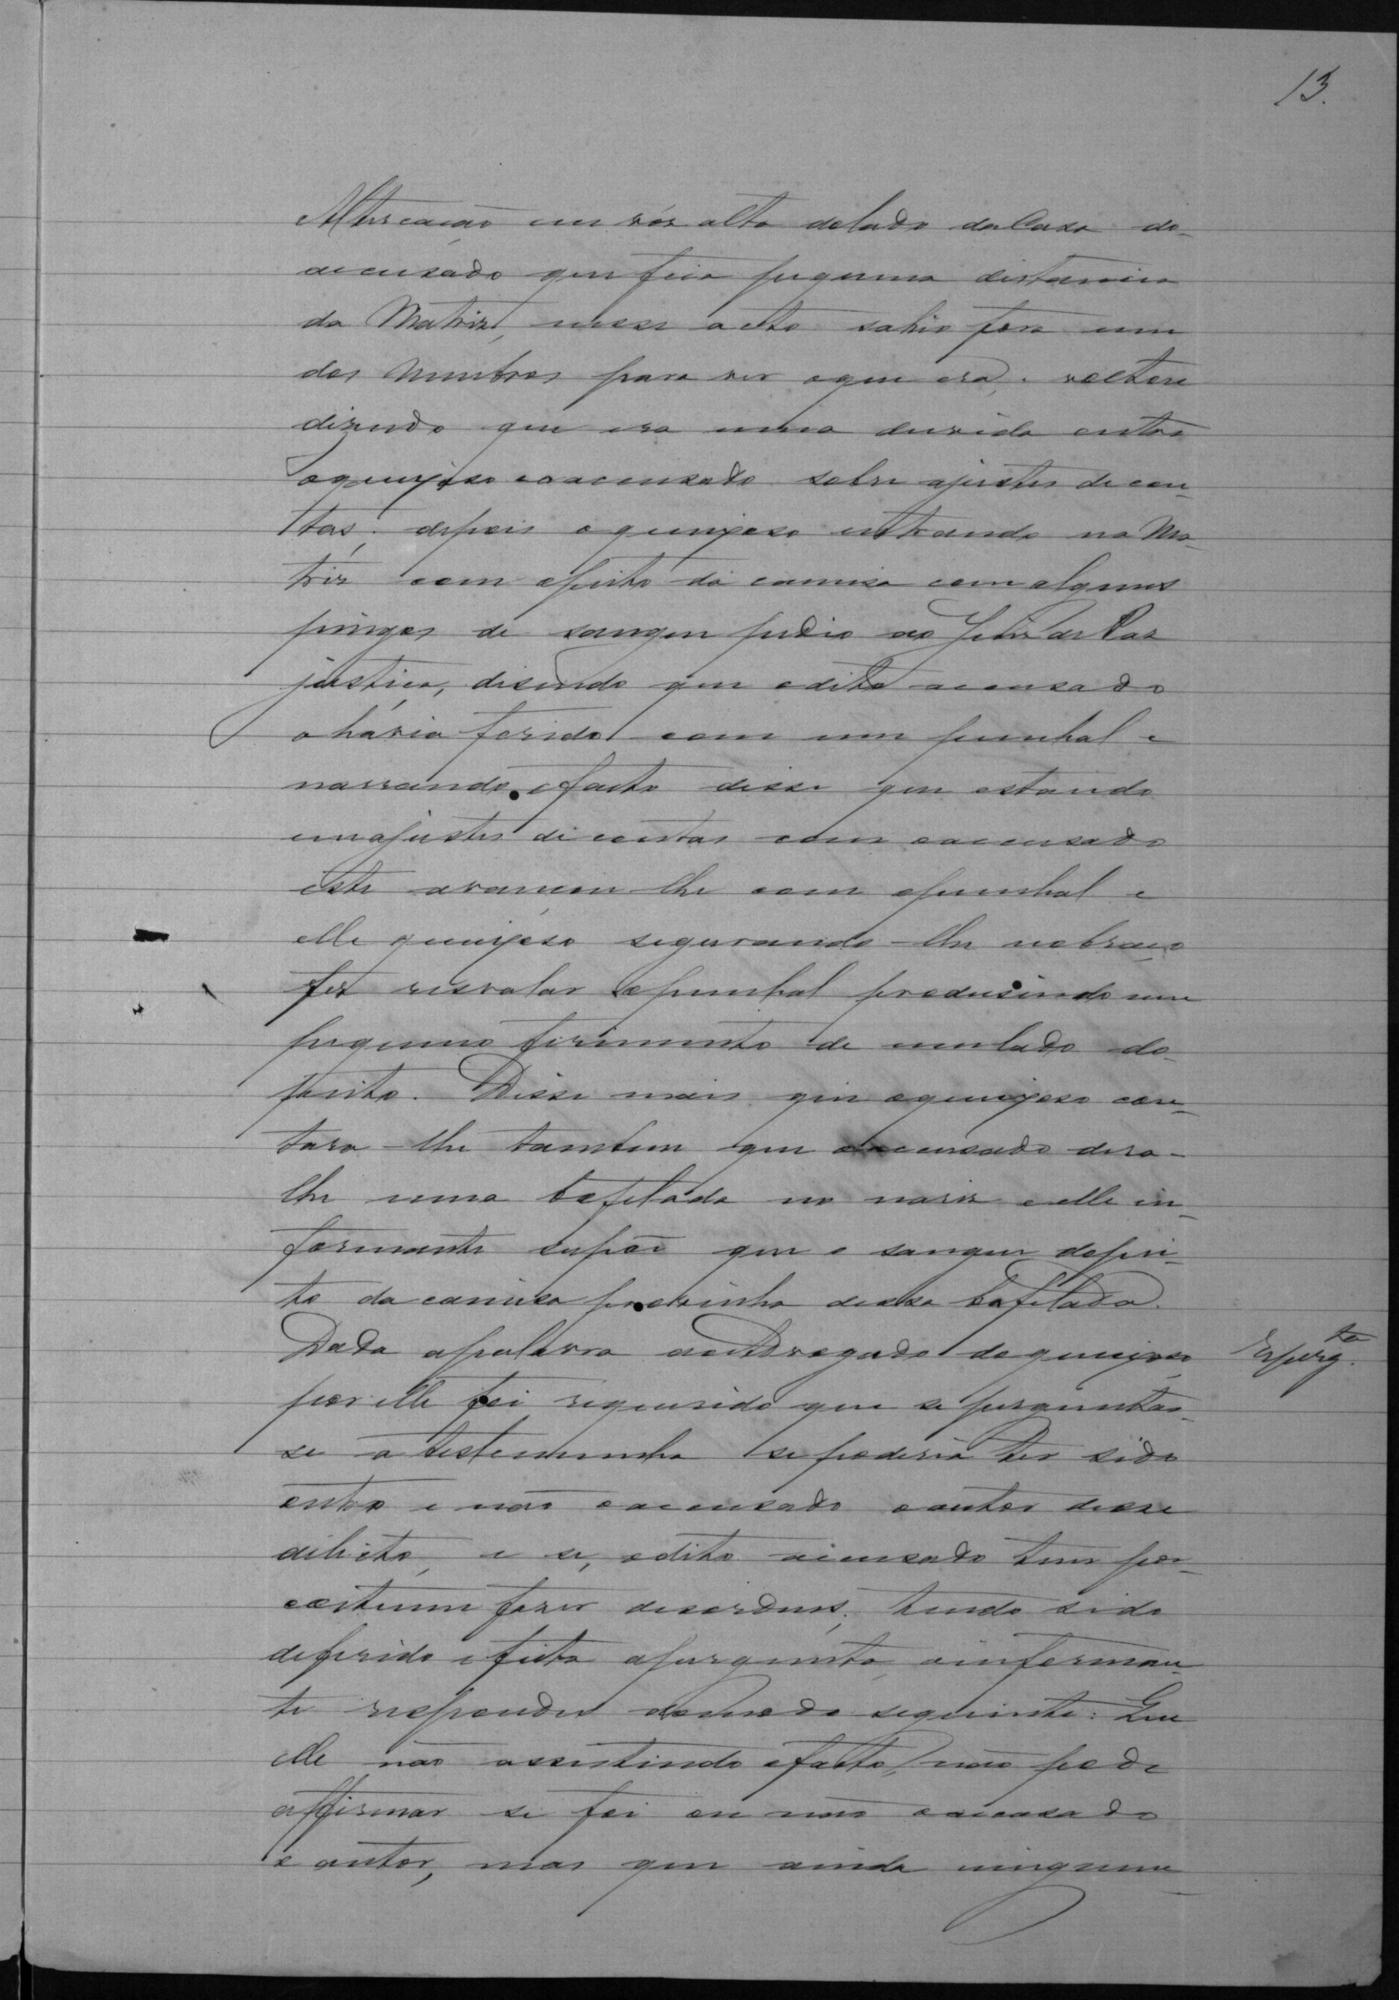 13.
Altercação em vós alta do lado da Casa do
accusado que fica pequena distancia
da Matriz, nesse acto sahio fora um
dos Membros para ver o que era, e voltara
dizendo que era uma duvida entre
o queixoso e o accusado sobre ajustes de con-
tas; depois o queixoso entrando na Ma-
triz com o peito da camisa com alguns
pingos de sangue pedio ao Juiz de Paz
justiça, disendo que o dito accusado
o havia ferido com um punhal e
narrando o facto disse que estando
em ajustes de contas com o accusado
este avançou-lhe com o punhal e
elle queixoso segurando-lhe no braço
fez resvalar o punhal produsindo um
pequeno ferimento de um lado do
peito. Disse mais que o queixoso con-
tara-lhe tambem que o accusado dera-
lhe uma bofetada no nariz e elle in-
formante supõe que o sangue do pei-
to da camisa provinha dessa bofetada.
Dada a palavra ao Advogado do queixoso
Reperg.ta
por elle foi requerido que se perguntas-
se a testemunha se poderia ter sido
outro e não o accusado o autor desse
delicto, e se, o dito accusado tem por
costume fazer desordens; tendo sido
deferido e feita a pergunta, o informan-
te respondeu do modo seguinte: Que
elle não assistindo o facto, não pode
affirmar se foi ou não o accusado
o autor, mas que ainda ninguem